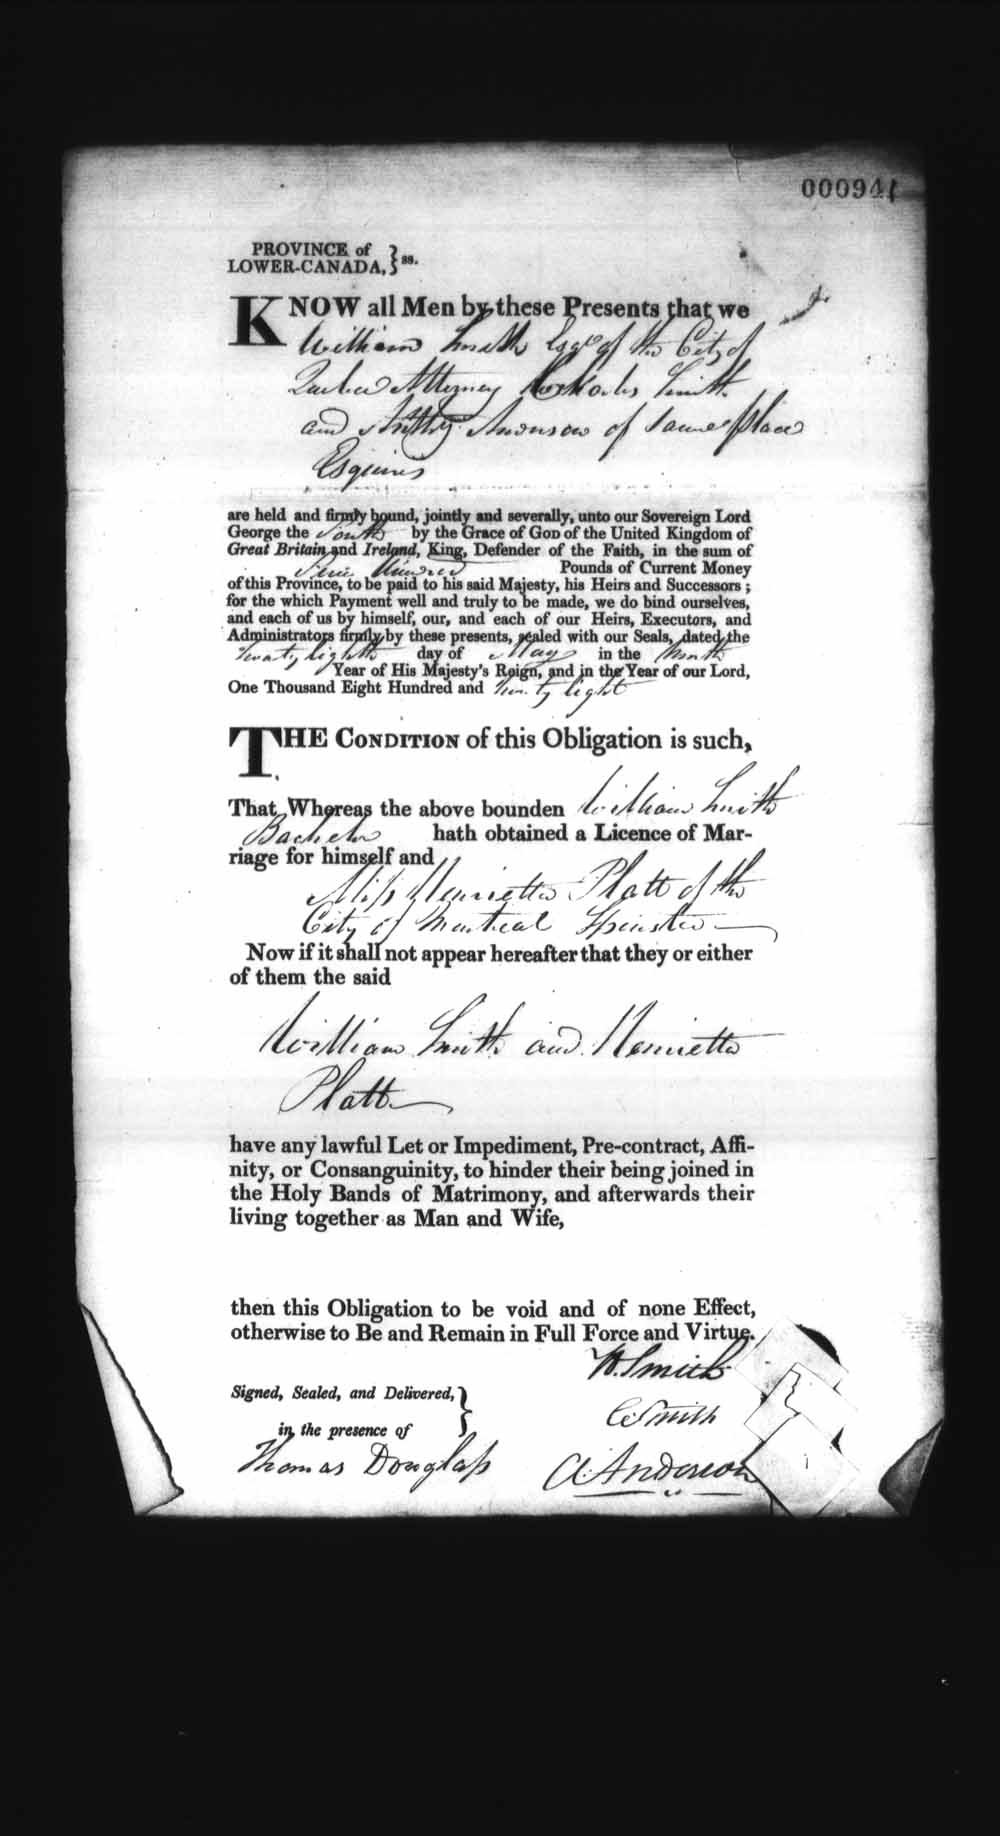 000941
PROVINCE of
LOWER-CANADA, } ss.
KNOW all Men by these Presents that we
William Smith Esqr of the City of
Quebec Attorney Charles Smith
and Anthony Anderson of same place
Esquires
are held and firmly bound, jointly and severally, unto our Sovereign Lord
George the Fourth by the Grace of GOD of the United Kingdom of
Great Britain and Ireland, King, Defender of the Faith, in the sum of
Hundred Pounds of Current Money
of this Province, to be paid to his said Majesty, his Heirs and Successors;
for the which Payment well and truly to be made, we do bind ourselves,
and each of us by himself, our, and each of our Heirs, Executors, and
Administrators firmly by these presents, sealed with our Seals, dated the
twenty eighth day of May in the Ninth
Year of His Majesty's Reign, and in the Year of our Lord,
One Thousand Eight Hundred and twenty eight
THE CONDITION of this Obligation is such,
That Whereas the above bounden William Smith
Bachelor hath obtained a Licence of Mar-
riage for himself and
Miss Henrietta Platt of the
City of Montreal Spinster
Now if it shall not appear hereafter that they or either
of them the said
William Smith and Henrietta
Platt
have any lawful Let or Impediment, Pre-contract, Affi-
nity, or Consanguinity, to hinder their being joined in
the Holy Bands of Matrimony, and afterwards their
living together as Man and Wife,
then this Obligation to be void and of none Effect,
otherwise to Be and Remain in Full Force and Virtue.
W. Smith
Signed, Sealed, and Delivered, }
C Smith
in the presence of
Thomas Douglass
A. Anderson